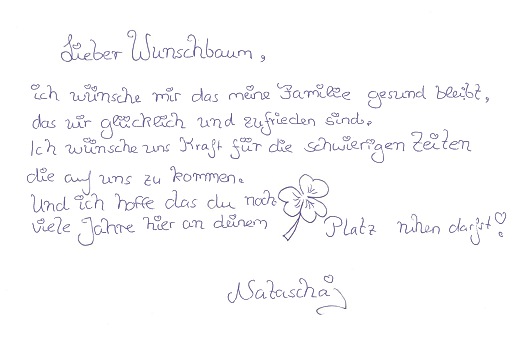 Lieber Wunschbaum,
ich wünsche mir das meine Familie gesund bleibt,
das wir glücklich und zufrieden sind.
Ich wünsche uns Kraft für die schwierigen Zeiten
die auf uns zu kommen.
Und ich hoffe das du noch
viele Jahre hier an deinem Platz ruhen darfst!
Natascha